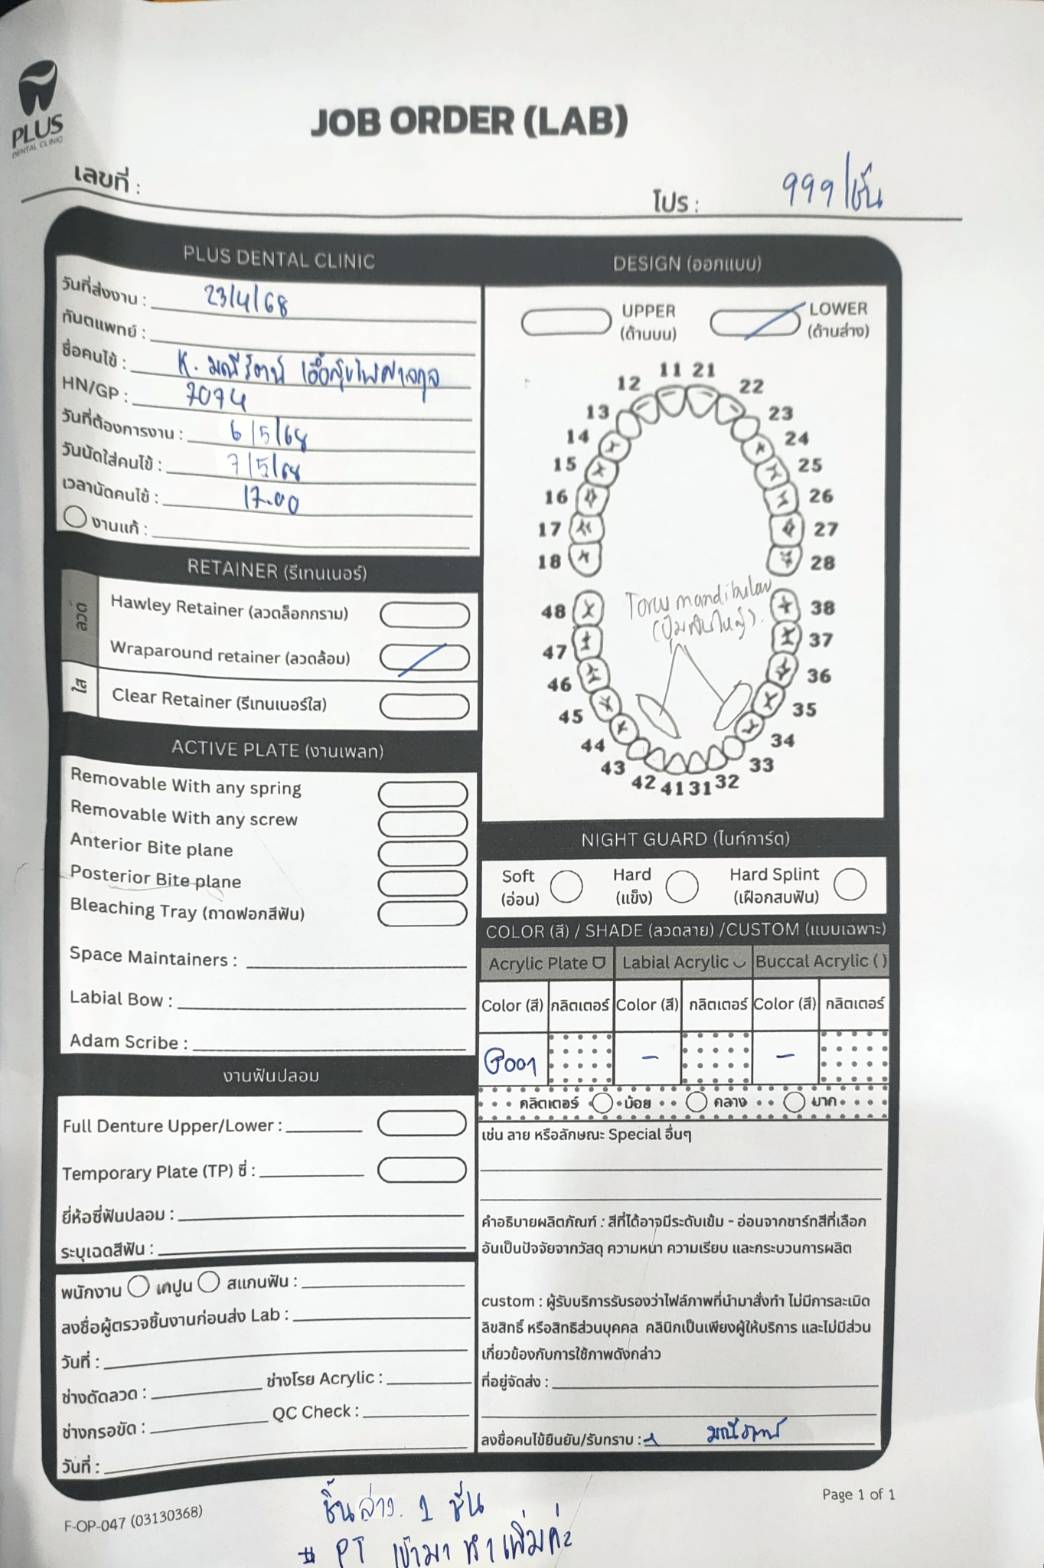 PLUS
DENTAL CLINIC
JOB ORDER (LAB)
เลขที่ :
โปร : 999/ชิ้น
PLUS DENTAL CLINIC
วันที่ส่งงาน : 23/4/68
ทันตแพทย์ :
ชื่อคนไข้ : K. มณีรัตน์
HN/GP : 7074
วันที่ต้องการงาน : 6/5/68
วันนัดใส่คนไข้ : 7/5/68
เวลานัดคนไข้ : 17.00
งานแก้ :
RETAINER (รีเทนเนอร์)
ลวด
Hawley Retainer (ลวดล็อกกราม)
Wraparound retainer (ลวดล้อม)
ใส
Clear Retainer (รีเทนเนอร์ใส)
ACTIVE PLATE (งานเพลท)
Removable With any spring
Removable With any screw
Anterior Bite plane
Posterior Bite plane
Bleaching Tray (ถาดฟอกสีฟัน)
Space Maintainers :
Labial Bow :
Adam Scribe :
งานฟันปลอม
Full Denture Upper/Lower :
Temporary Plate (TP) ซี่ :
ยี่ห้อซี่ฟันปลอม :
ระบุเฉดสีฟัน :
พนักงาน เทปูน สแกนฟัน :
ลงชื่อผู้ตรวจชิ้นงานก่อนส่ง Lab :
วันที่ :
ช่างดัดลวด : ช่างโรย Acrylic :
ช่างกรอขัด : QC Check :
วันที่ :
DESIGN (ออกแบบ)
UPPER
(ด้านบน)
LOWER
(ด้านล่าง)
11 21
12 22
13 23
14 24
15 25
16 26
17 27
18 28
48 38
47 37
46 36
45 35
44 34
43 33
42 41 31 32
Torus mandibular
NIGHT GUARD (ไนท์การ์ด)
Soft
(อ่อน)
Hard
(แข็ง)
Hard Splint
(เฝือกสบฟัน)
COLOR (สี) / SHADE (ลวดลาย) /CUSTOM (แบบเฉพาะ)
Acrylic Plate Labial Acrylic Buccal Acrylic ( )
Color (สี) กลิตเตอร์ Color (สี) กลิตเตอร์ Color (สี) กลิตเตอร์
P001 - -
กลิตเตอร์ น้อย กลาง มาก
เช่น ลาย หรือลักษณะ Special อื่นๆ
คำอธิบายผลิตภัณฑ์ : สีที่ได้อาจมีระดับเข้ม - อ่อนจากชาร์ทสีที่เลือก
อันเป็นปัจจัยจากวัสดุ ความหนา ความเรียบ และกระบวนการผลิต
custom : ผู้รับบริการรับรองว่าไฟล์ภาพที่นำมาสั่งทำ ไม่มีการละเมิด
ลิขสิทธิ์ หรือสิทธิส่วนบุคคล คลินิกเป็นเพียงผู้ให้บริการ และไม่มีส่วน
เกี่ยวข้องกับการใช้ภาพดังกล่าว
ที่อยู่จัดส่ง :
ลงชื่อคนไข้ยืนยัน/รับทราบ : มณีรัตน์
Page 1 of 1
F-OP-047 (03130368)
ชิ้นล่าง. 1 ชิ้น
# PT เข้ามาทำเพิ่มค่ะ